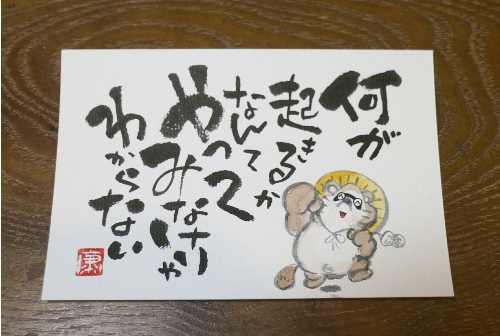 何が
起きるか
なんて
やって
みなけりゃ
わからない